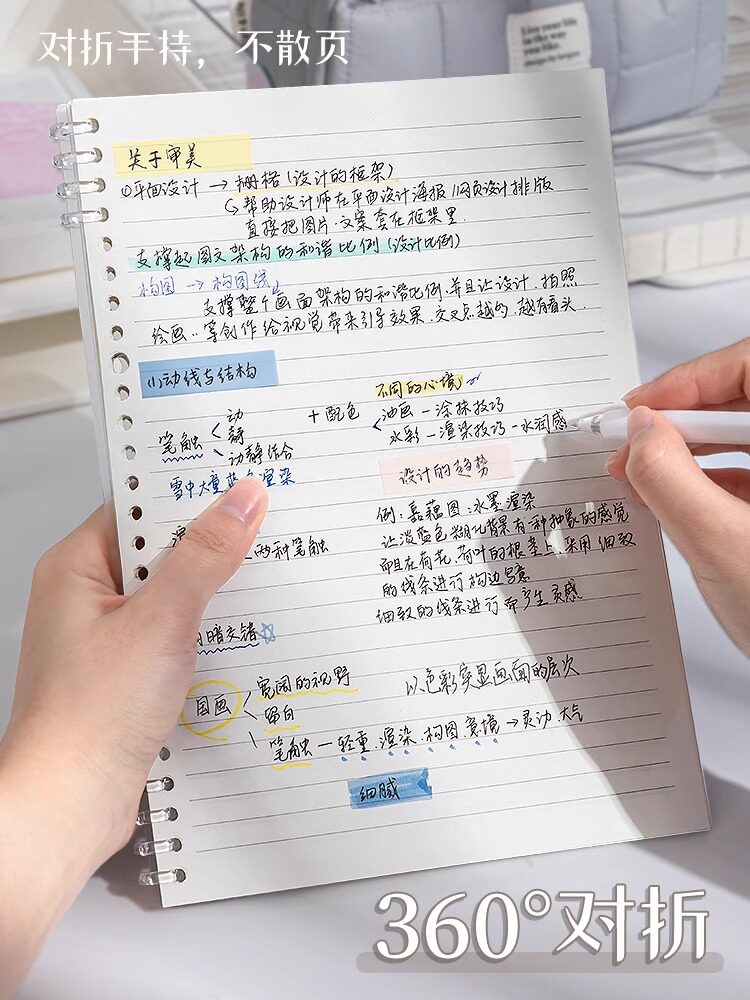 对折手持，不散页
Live your life
in the way
you like.
关于审美
①平面设计 → 栅格（设计的框架）
↳帮助设计师在平面设计海报/网页设计排版
直接把图片.文案套在框架里
支撑起图文架构的和谐比例（设计比例）
构图 → 构图线
支撑整个画面架构的和谐比例.并且让设计.拍照
绘画..等创作给视觉带来引导效果.交叉点越的.越有看头.
(1)动线与结构
不同的心境
笔触 < 动
静
动静结合
+ 配色 < 油画 — 涂抹技巧
水彩 — 渲染技巧 - 水润感
雪中大量蓝色渲染
设计的趋势
两种笔触
例：嘉藕图：水墨渲染
让淡蓝色糊化背景有一种抽象的感觉
而且在荷花.荷叶的根茎上.采用细致
的线条进行构边写意
细致的线条进行而产生灵感
暗交错
国画 < 宽阔的视野
留白
笔触 — 轻重.渲染.构图.意境 → 灵动.大气
以色彩突显画面的层次
细腻
360°对折